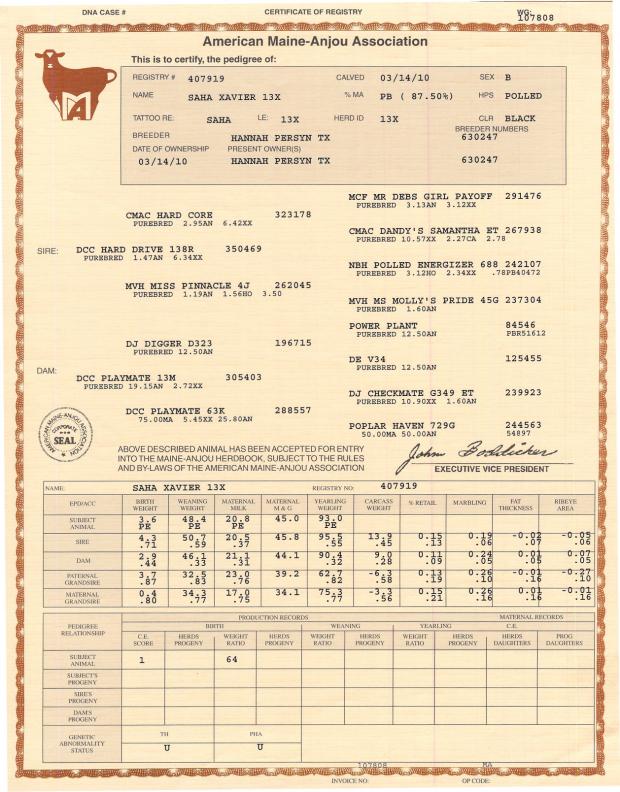 DNA CASE # CERTIFICATE OF REGISTRY WG:
107808
American Maine-Anjou Association
This is to certify, the pedigree of:
REGISTRY # 407919 CALVED 03/14/10 SEX B
NAME SAHA XAVIER 13X % MA PB ( 87.50%) HPS POLLED
TATTOO RE: SAHA LE: 13X HERD ID 13X CLR BLACK
BREEDER HANNAH PERSYN TX BREEDER NUMBERS 630247
DATE OF OWNERSHIP PRESENT OWNER(S)
03/14/10 HANNAH PERSYN TX 630247
MCF MR DEBS GIRL PAYOFF 291476
PUREBRED 3.13AN 3.12XX
CMAC HARD CORE 323178
PUREBRED 2.95AN 6.42XX
CMAC DANDY'S SAMANTHA ET 267938
PUREBRED 10.57XX 2.27CA 2.78
SIRE: DCC HARD DRIVE 138R 350469
PUREBRED 1.47AN 6.34XX
NBH POLLED ENERGIZER 688 242107
PUREBRED 3.12HO 2.34XX .78PB40472
MVH MISS PINNACLE 4J 262045
PUREBRED 1.19AN 1.56HO 3.50
MVH MS MOLLY'S PRIDE 45G 237304
PUREBRED 1.60AN
POWER PLANT 84546
PUREBRED 12.50AN PBR51612
DJ DIGGER D323 196715
PUREBRED 12.50AN
DE V34 125455
PUREBRED 12.50AN
DAM: DCC PLAYMATE 13M 305403
PUREBRED 19.15AN 2.72XX
DJ CHECKMATE G349 ET 239923
PUREBRED 10.90XX 1.60AN
DCC PLAYMATE 63K 288557
75.00MA 5.45XX 25.80AN
POPLAR HAVEN 729G 244563
50.00MA 50.00AN 54897
AMERICAN MAINE-ANJOU ASSOCIATION
CORPORATE
SEAL
ABOVE DESCRIBED ANIMAL HAS BEEN ACCEPTED FOR ENTRY
INTO THE MAINE-ANJOU HERDBOOK, SUBJECT TO THE RULES
AND BY-LAWS OF THE AMERICAN MAINE-ANJOU ASSOCIATION
John Boddicker
EXECUTIVE VICE PRESIDENT
NAME: SAHA XAVIER 13X REGISTRY NO: 407919
EPD/ACC BIRTH WEIGHT WEANING WEIGHT MATERNAL MILK MATERNAL M & G YEARLING WEIGHT CARCASS WEIGHT % RETAIL MARBLING FAT THICKNESS RIBEYE AREA
SUBJECT ANIMAL 3.6 48.4 20.8 45.0 93.0
PE PE PE PE
SIRE 4.3 50.7 20.5 45.8 95.5 13.9 0.15 0.19 -0.02 -0.05
.71 .59 .37 .55 .45 .13 .06 .07 .06
DAM 2.9 46.1 21.1 44.1 90.4 9.0 0.11 0.24 0.01 0.07
.44 .33 .31 .32 .28 .09 .05 .05 .05
PATERNAL GRANDSIRE 3.7 32.5 23.0 39.2 62.7 -6.3 0.13 0.26 -0.01 -0.27
.87 .83 .76 .82 .58 .19 .10 .16 .10
MATERNAL GRANDSIRE 0.4 34.3 17.0 34.1 75.3 -3.3 0.15 0.26 0.01 -0.01
.80 .77 .75 .77 .56 .21 .16 .16 .16
PEDIGREE RELATIONSHIP PRODUCTION RECORDS MATERNAL RECORDS
BIRTH WEANING YEARLING C.E.
C.E. SCORE HERDS PROGENY WEIGHT RATIO HERDS PROGENY WEIGHT RATIO HERDS PROGENY WEIGHT RATIO HERDS PROGENY HERDS DAUGHTERS PROG DAUGHTERS
SUBJECT ANIMAL 1 64
SUBJECT'S PROGENY
SIRE'S PROGENY
DAM'S PROGENY
GENETIC ABNORMALITY STATUS TH PHA
U U
107808 MA
INVOICE NO: OP CODE: